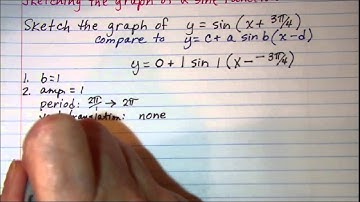 Sketching the graph of a sine
Sketch the graph of y = sin (x + 3π/4)
compare to y = c + a sin b(x - d)
y = 0 + 1 sin 1 (x - - 3π/4)
1. b = 1
2. amp. = 1
period: 2π/1 → 2π
translation: none